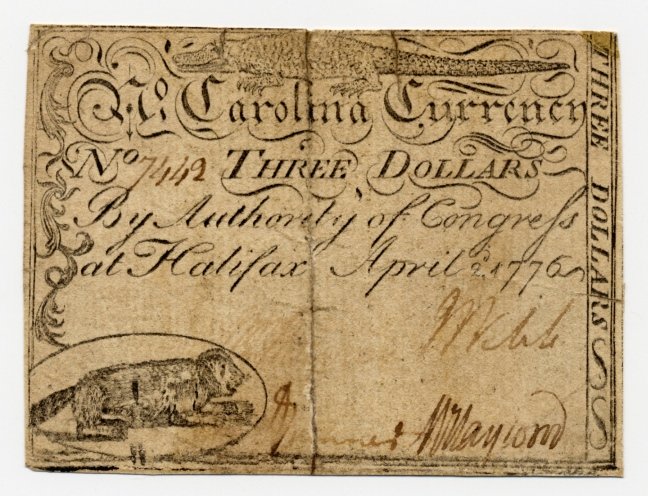 No. Carolina Currency
No 7442 THREE DOLLARS
By Authority of Congress
at Halifax April 2, 1776
THREE DOLLARS
J Webb
W Haywood